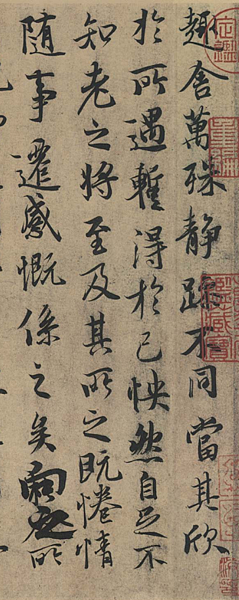 趣舎萬殊静躁不同當其欣
於所遇暫得於己怏然自足不
知老之将至及其所之既惓情
随事遷感慨係之矣向之所